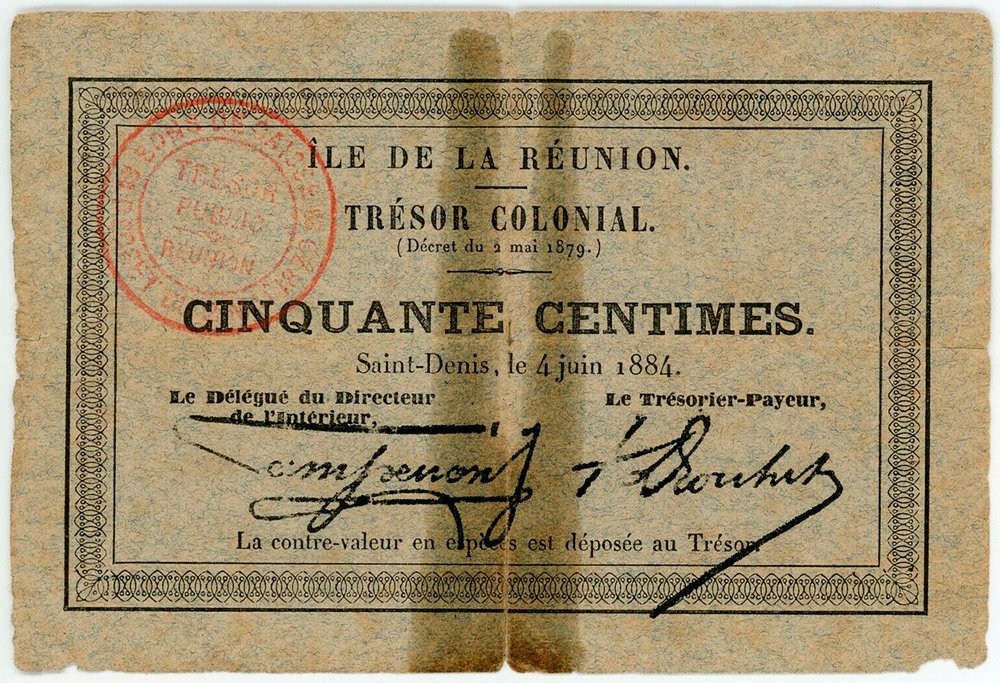 ÎLE DE LA RÉUNION.
TRÉSOR COLONIAL.
(Décret du 2 mai 1879.)
CINQUANTE CENTIMES.
Saint-Denis, le 4 juin 1884.
Le Délégué du Directeur
de l'Intérieur,
Le Trésorier-Payeur,
La contre-valeur en espèces est déposée au Trésor.
BONS DE CAISSE
TRÉSOR
PUBLIC
RÉUNION